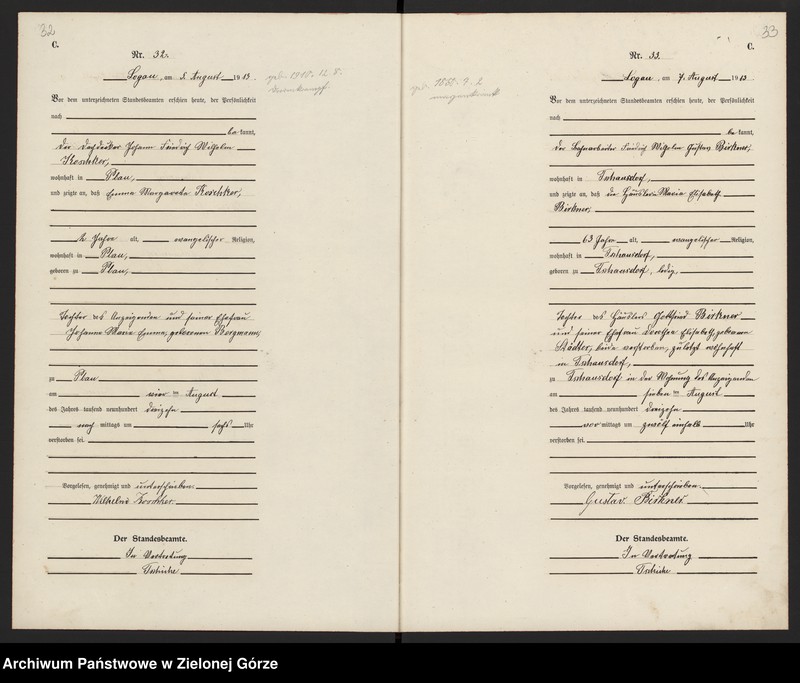 32
C.
Nr. 32.
Logau, am 5. August 1913.
Vor dem unterzeichneten Standesbeamten erschien heute, der Persönlichkeit
nach
be kannt,
der Dachdecker Johann Friedrich Wilhelm
Koschker,
wohnhaft in Plau,
und zeigte an, daß Emma Margarete Koschker,
2 Jahre alt, evangelischer Religion,
wohnhaft in Plau,
geboren zu Plau,
Tochter des Anzeigenden und seiner Ehefrau
Johanne Marie Emma, geborenen Bergmann,
zu Plau
am vier ten August
des Jahres tausend neunhundert dreizehn
nach mittags um sechs Uhr
verstorben sei.
Vorgelesen, genehmigt und unterschrieben.
Wilhelm Koschker
Der Standesbeamte.
In Vertretung
geb. 1910. 12. 8.
33
C.
Nr. 33.
Logau, am 7. August 1913
Vor dem unterzeichneten Standesbeamten erschien heute, der Persönlichkeit
nach
be kannt,
der Friedrich Wilhelm Gustav Birkner,
wohnhaft in Tschausdorf,
und zeigte an, daß die Häuslerin Marie Elisabeth
Birkner,
63 Jahre alt, evangelischer Religion,
wohnhaft in Tschausdorf,
geboren zu Tschausdorf, ledig,
Tochter des Häuslers Gottfried Birkner
und seiner Ehefrau Dorothea Elisabeth, geborenen
Städter, beide verstorben, zuletzt wohnhaft
in Tschausdorf,
zu Tschausdorf in der Wohnung des Anzeigenden
am sieben ten August
des Jahres tausend neunhundert dreizehn
vor mittags um zwölf einhalb Uhr
verstorben sei.
Vorgelesen, genehmigt und unterschrieben.
Gustav Birkner
Der Standesbeamte.
In Vertretung
Archiwum Państwowe w Zielonej Górze